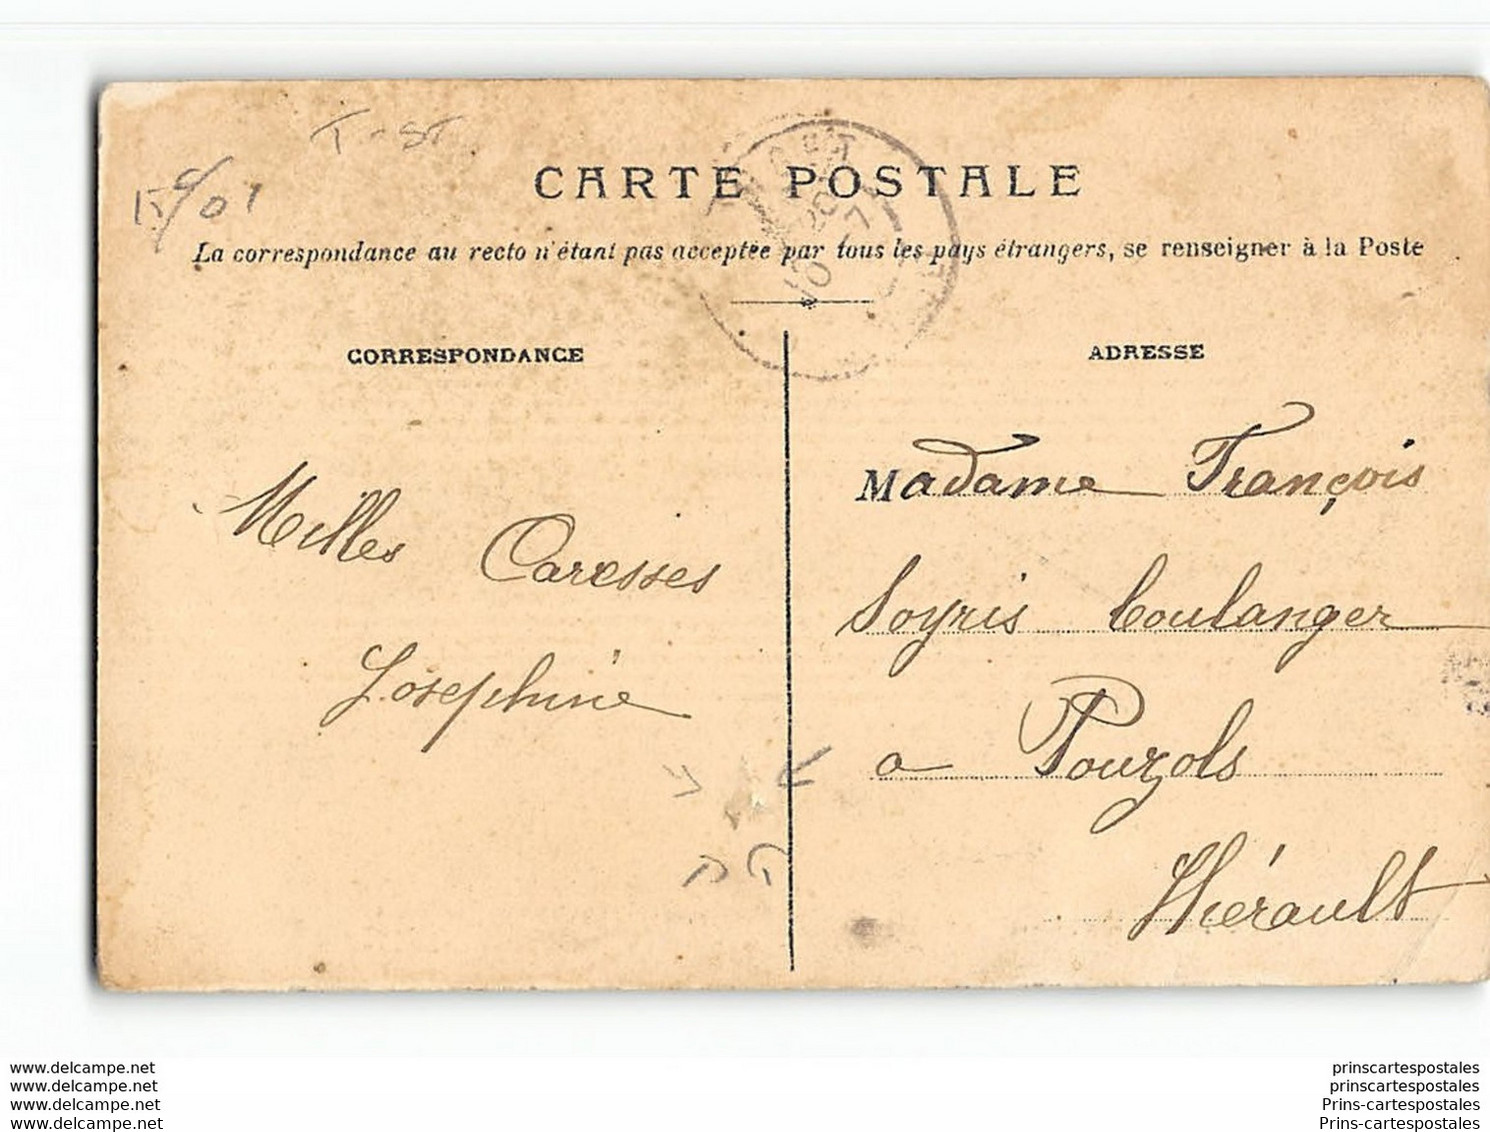 T-ST
CARTE POSTALE
La correspondance au recto n'étant pas acceptée par tous les pays étrangers, se renseigner à la Poste
CORRESPONDANCE
ADRESSE
Milles Caresses
Joséphine
Madame François
Soyris boulanger
a Pouzols
Hérault
www.delcampe.net
www.delcampe.net
www.delcampe.net
www.delcampe.net
prinscartespostales
prinscartespostales
Prins-cartespostales
Prins-cartespostales